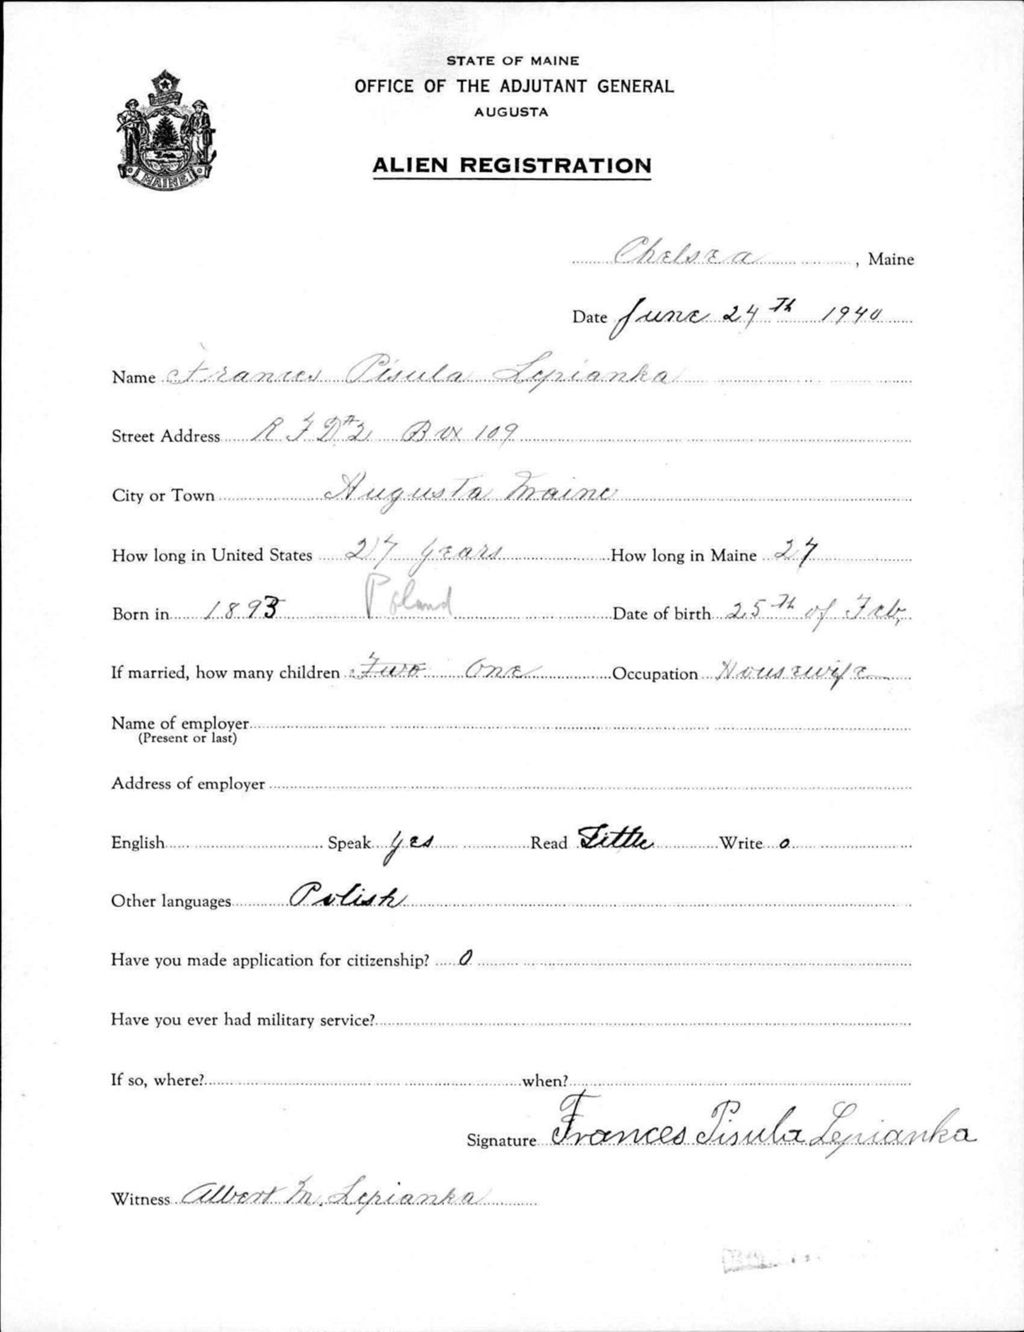 STATE OF MAINE
OFFICE OF THE ADJUTANT GENERAL
AUGUSTA
MAINE
ALIEN REGISTRATION
Chelsea, Maine
Date June 24th 1940
Name Frances Pisula Lepianka
Street Address R F D #2 Box 109
City or Town Augusta Maine
How long in United States 27 years How long in Maine 27
Born in 1893 Poland Date of birth 25th of Feb,
If married, how many children Two One Occupation Housewife
Name of employer
(Present or last)
Address of employer
English Speak yes Read Little Write o
Other languages Polish
Have you made application for citizenship? 0
Have you ever had military service?
If so, where? when?
Signature Frances Pisula Lepianka
Witness Albert M. Lepianka